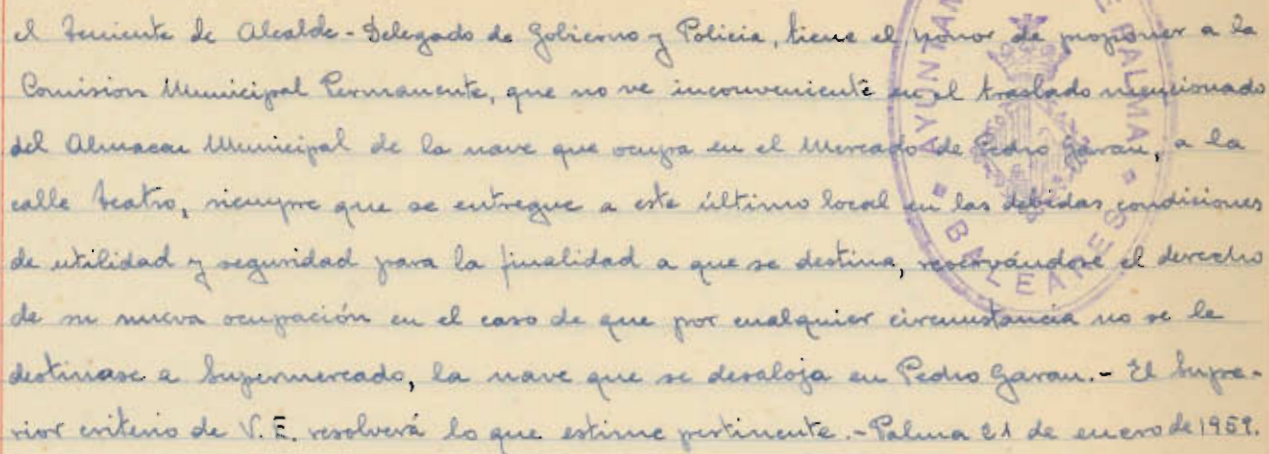 el Teniente de Alcalde-Delegado de Gobierno y Policia, tiene el honor de proponer a la
Comision Municipal Permanente, que no ve inconveniente en el traslado mencionado
del Almacen Municipal de la nave que ocupa en el Mercado de Pedro Garau, a la
calle Teatro, siempre que se entregue a este último local en las debidas condiciones
de utilidad y seguridad para la finalidad a que se destina, reservándose el derecho
de su nueva ocupación en el caso de que por cualquier circunstancia no se le
destinase a Supermercado, la nave que se desaloja en Pedro Garau.- El Supe-
rior criterio de V.E. resolverá lo que estime pertinente.-Palma 21 de enero de 1959.
AYUNTAM E PALMA
BALEARES